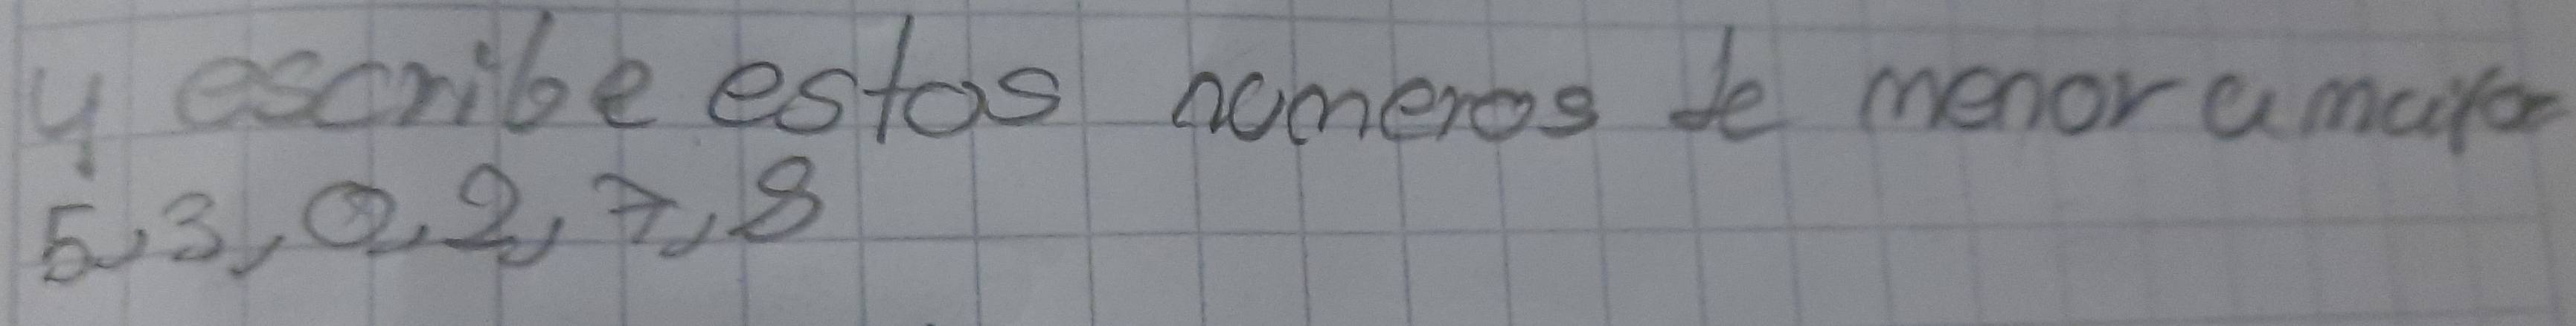 y escribe estos numeros de menor a mayor
5,3,0,2,7,8